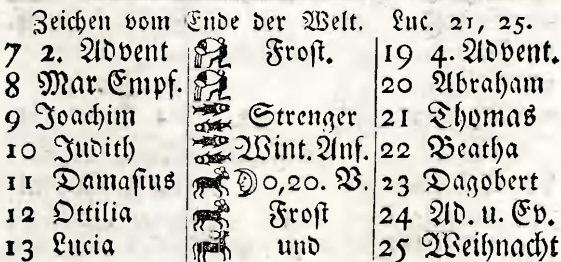 Zeichen vom Ende der Welt. Luc. 21, 25.
7 2. Advent Frost. 19 4. Advent.
8 Mar. Empf. 20 Abraham
9 Joachim Strenger 21 Thomas
10 Judith Wint. Anf. 22 Beatha
11 Damasius 0,20. V. 23 Dagobert
12 Ottilia Frost 24 Ad. u. Ev.
13 Lucia und 25 Weihnacht